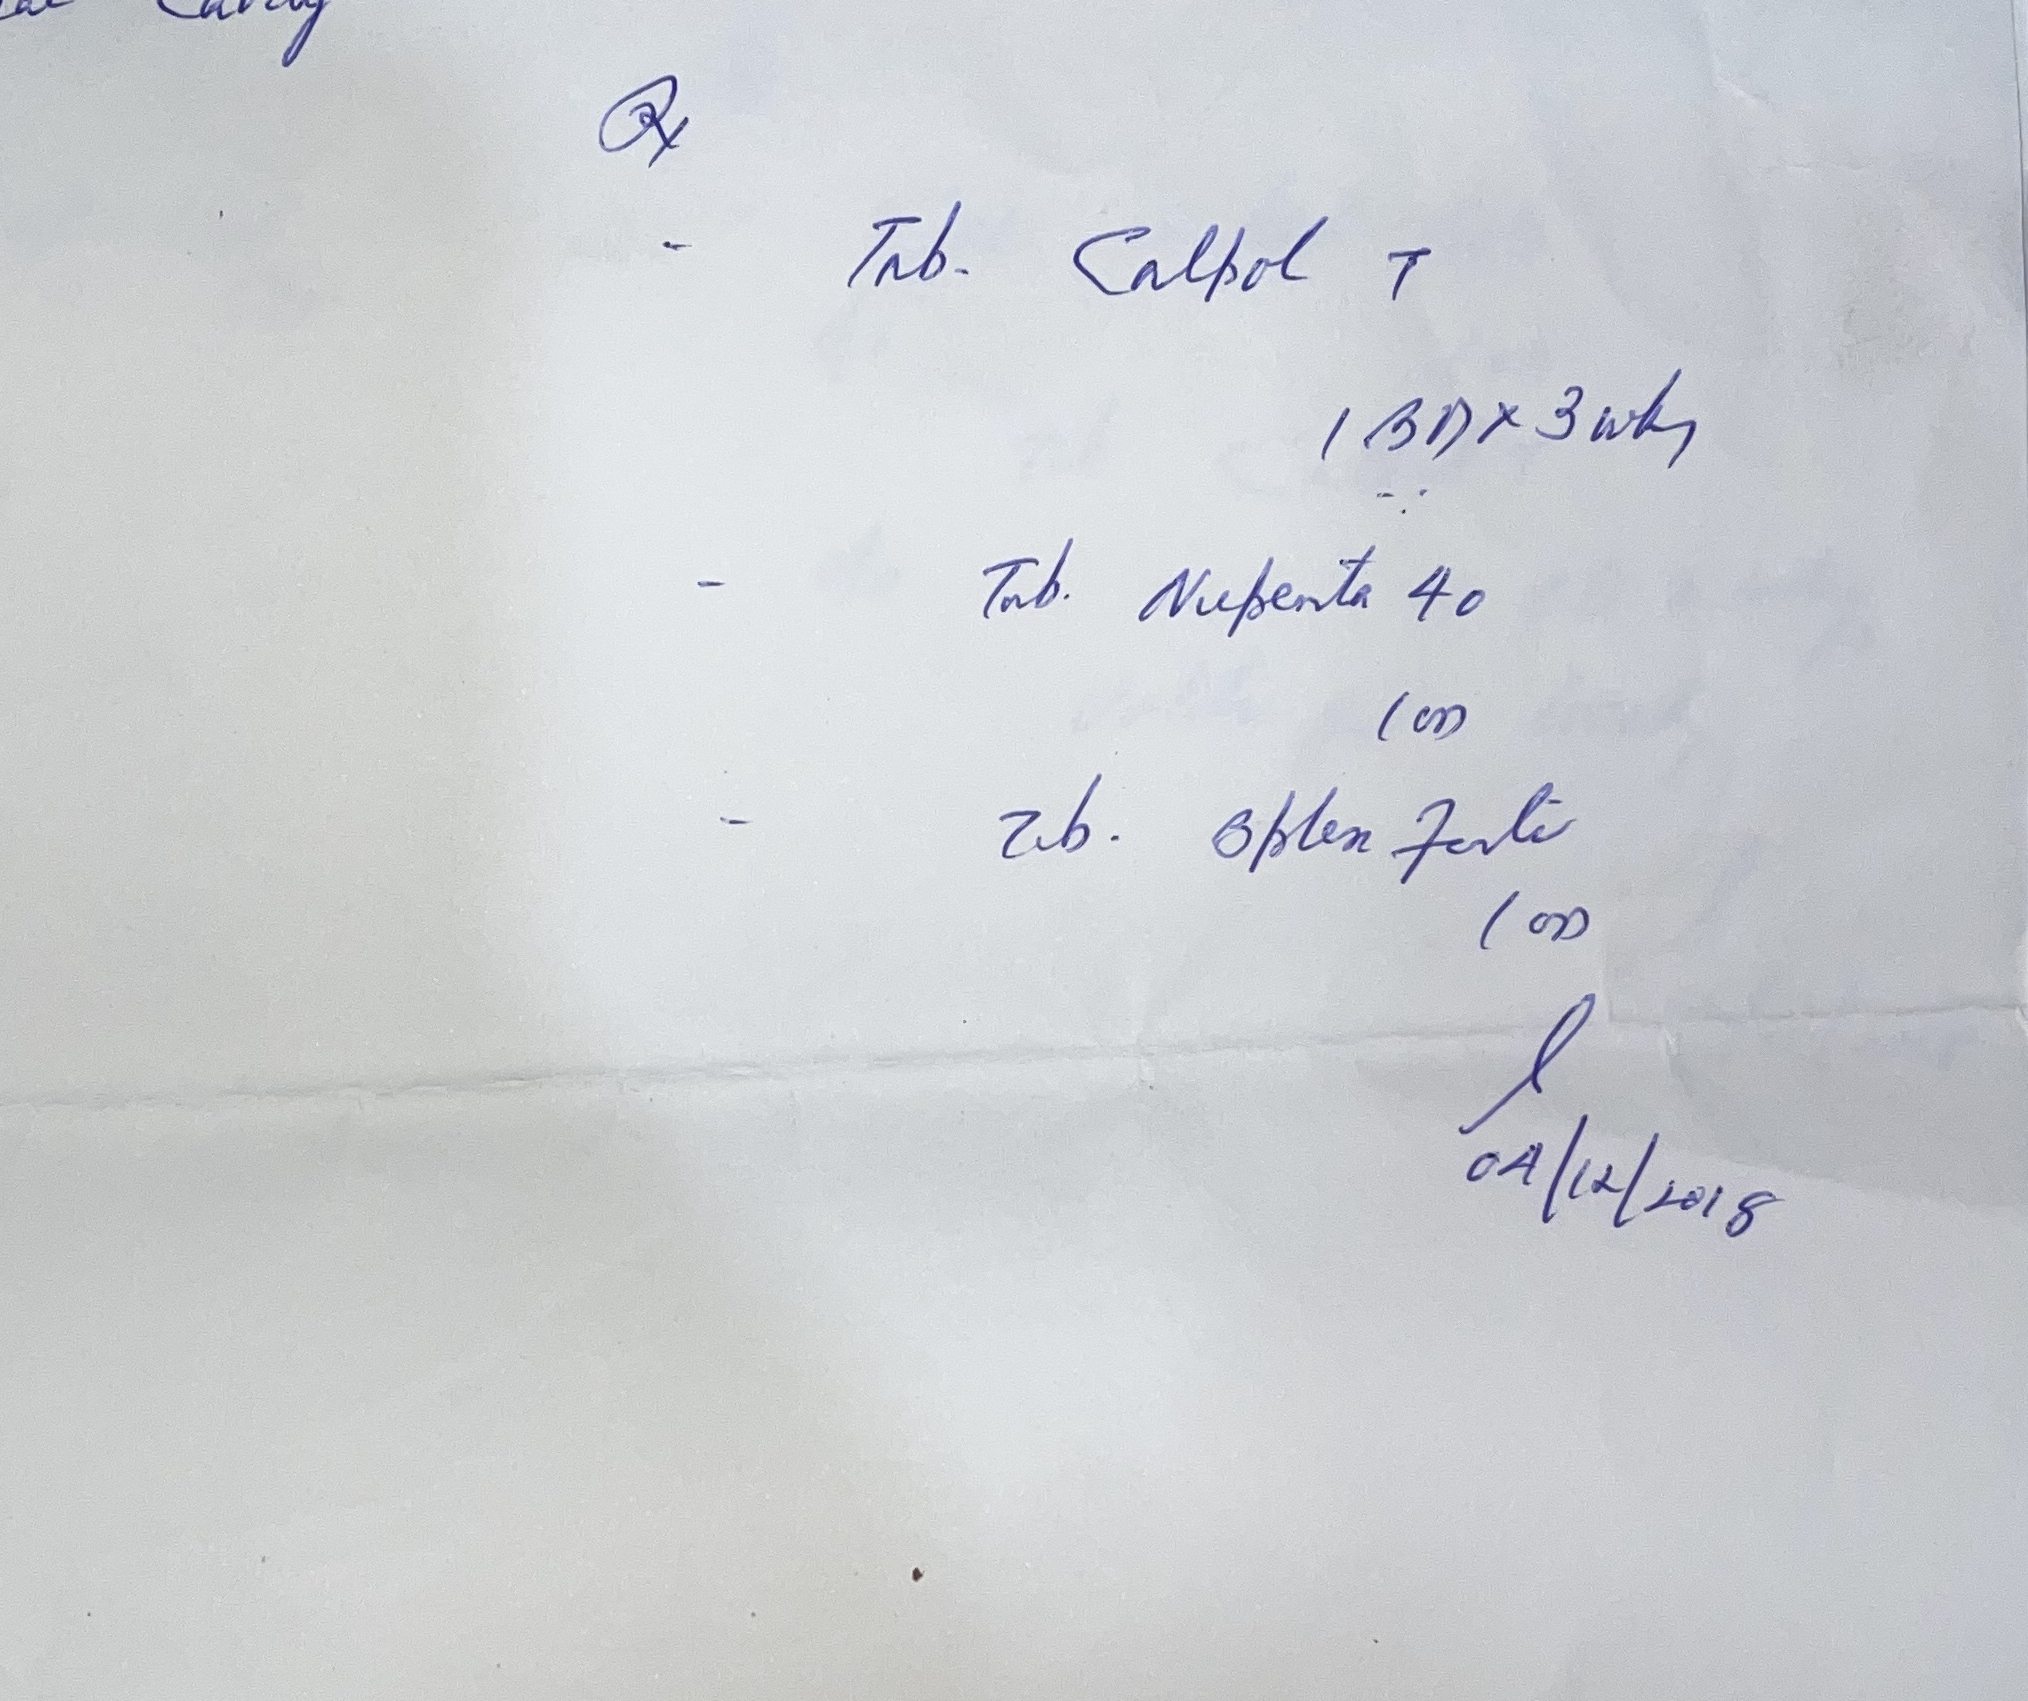 Cavity
Rx
- Tab. Calpol T
1 BD x 3 wks
- Tab. Nupenta 40
1 OD
- Tab. Bplex Forte
1 OD
04/12/2018